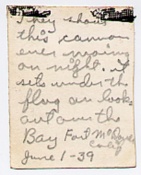 They shoot
this cannon
every
on night. it
sets under the
flag an looks
out over the
Bay Fort McDowell
Calif
June 1-39